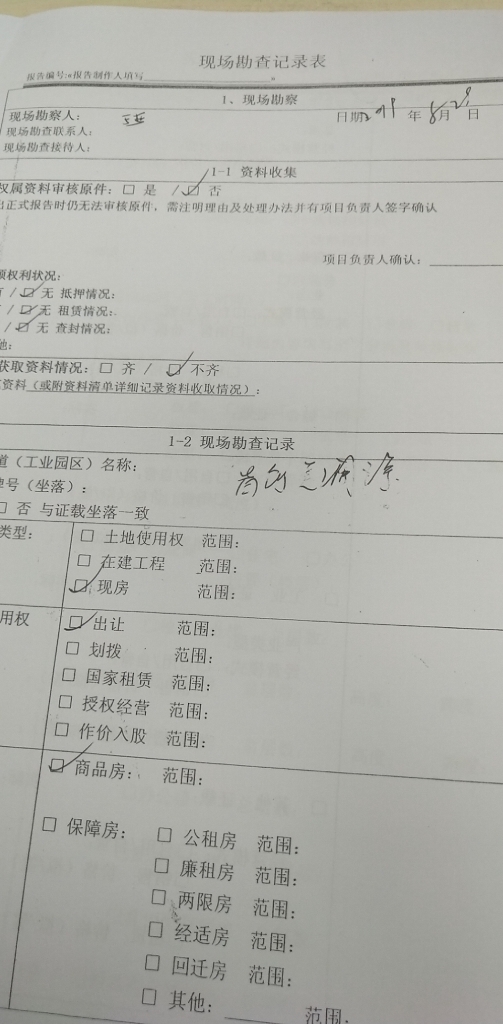 现场勘查记录表
报告编号:«报告制作人填写 »
1、现场勘察
现场勘察人: 日期 年 8月29日
现场勘查联系人:
现场勘查接待人:
1-1 资料收集
权属资料审核原件: □ 是 / ☑ 否
出正式报告时仍无法审核原件, 需注明理由及处理办法并有项目负责人签字确认
项目负责人确认:
权利状况:
/ ☑ 无 抵押情况:
/ ☑ 无 租赁情况:
/ ☑ 无 查封情况:
他:
获取资料情况: □ 齐 / ☑ 不齐
资料(或附资料清单详细记录资料收取情况):
1-2 现场勘查记录
道(工业园区)名称:
牌号(坐落):
□ 否 与证载坐落一致
类型: □ 土地使用权 范围:
□ 在建工程 范围:
☑ 现房 范围:
用权 ☑ 出让 范围:
□ 划拨 范围:
□ 国家租赁 范围:
□ 授权经营 范围:
□ 作价入股 范围:
☑ 商品房: 范围:
□ 保障房: □ 公租房 范围:
□ 廉租房 范围:
□ 两限房 范围:
□ 经适房 范围:
□ 回迁房 范围:
□ 其他: 范围: